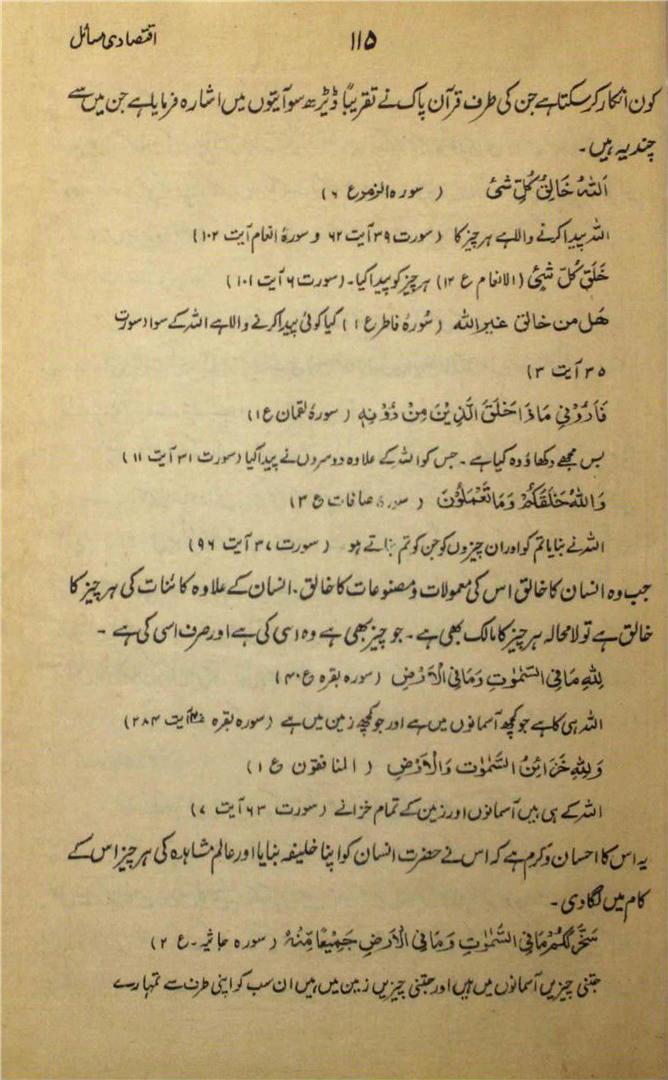 اقتصادی مسائل
۱۱۵
کون انکار کر سکتا ہے جن کی طرف قرآن پاک نے تقریباً ڈیڑھ سو آیتوں میں اشارہ فرمایا ہے جن میں سے
چند یہ ہیں۔
اَللّٰہُ خَالِقُ کُلِّ شَیْءٍ ( سورہ الزمر ع ۶ )
اللہ پیدا کرنے والا ہے ہر چیز کا (سورت ۳۹ آیت ۶۲ و سورۂ انعام آیت ۱۰۲)
خَلَقَ کُلَّ شَیْءٍ (الانعام ع ۱۲) ہر چیز کو پیدا کیا۔ (سورت ۶ آیت ۱۰۱)
ھَل من خالق غیر اللہ (سُورۂ فاطر ع ۱) کیا کوئی پیدا کرنے والا ہے اللہ کے سوا (سورت
۳۵ آیت ۳)
فَاَرُوْنِیْ مَاذَا خَلَقَ الَّذِیْنَ مِنْ دُوْنِہٖ (سورۂ لقمان ع ۱)
بس مجھے دکھاؤ وہ کیا ہے۔ جس کو اللہ کے علاوہ دوسروں نے پیدا کیا (سورت ۳۱ آیت ۱۱)
وَاللّٰہُ خَلَقَکُمْ وَمَا تَعْمَلُوْنَ ( سورۂ صافات ع ۳)
اللہ نے بنایا تم کو اور ان چیزوں کو جن کو تم بناتے ہو (سورت ۳۷ آیت ۹۶)
جب وہ انسان کا خالق اس کی معمولات و مصنوعات کا خالق۔ انسان کے علاوہ کائنات کی ہر چیز کا
خالق ہے تو لا محالہ ہر چیز کا مالک بھی ہے۔ جو چیز بھی ہے وہ اسی کی ہے اور صرف اسی کی ہے۔
لِلّٰہِ مَا فِی السَّمٰوٰتِ وَمَا فِی الْاَرْضِ (سورہ بقرہ ع ۴۰)
اللہ ہی کا ہے جو کچھ آسمانوں میں ہے اور جو کچھ زمین میں ہے (سورہ بقرہ آیت ۲۸۴)
وَلِلّٰہِ خَزَائِنُ السَّمٰوٰتِ وَالْاَرْضِ ( المنافقون ع ۱)
اللہ کے ہی ہیں آسمانوں اور زمین کے تمام خزانے (سورت ۶۳ آیت ۷)
یہ اس کا احسان و کرم ہے کہ اس نے حضرت انسان کو اپنا خلیفہ بنایا اور عالم مشاہدہ کی ہر چیز اس کے
کام میں لگا دی۔
سَخَّرَ لَکُمْ مَا فِی السَّمٰوٰتِ وَمَا فِی الْاَرْضِ جَمِیْعًا مِّنْہُ (سورہ جاثیہ۔ ع ۲)
جتنی چیزیں آسمانوں میں ہیں اور جتنی چیزیں زمین میں ہیں ان سب کو اپنی طرف سے تمہارے